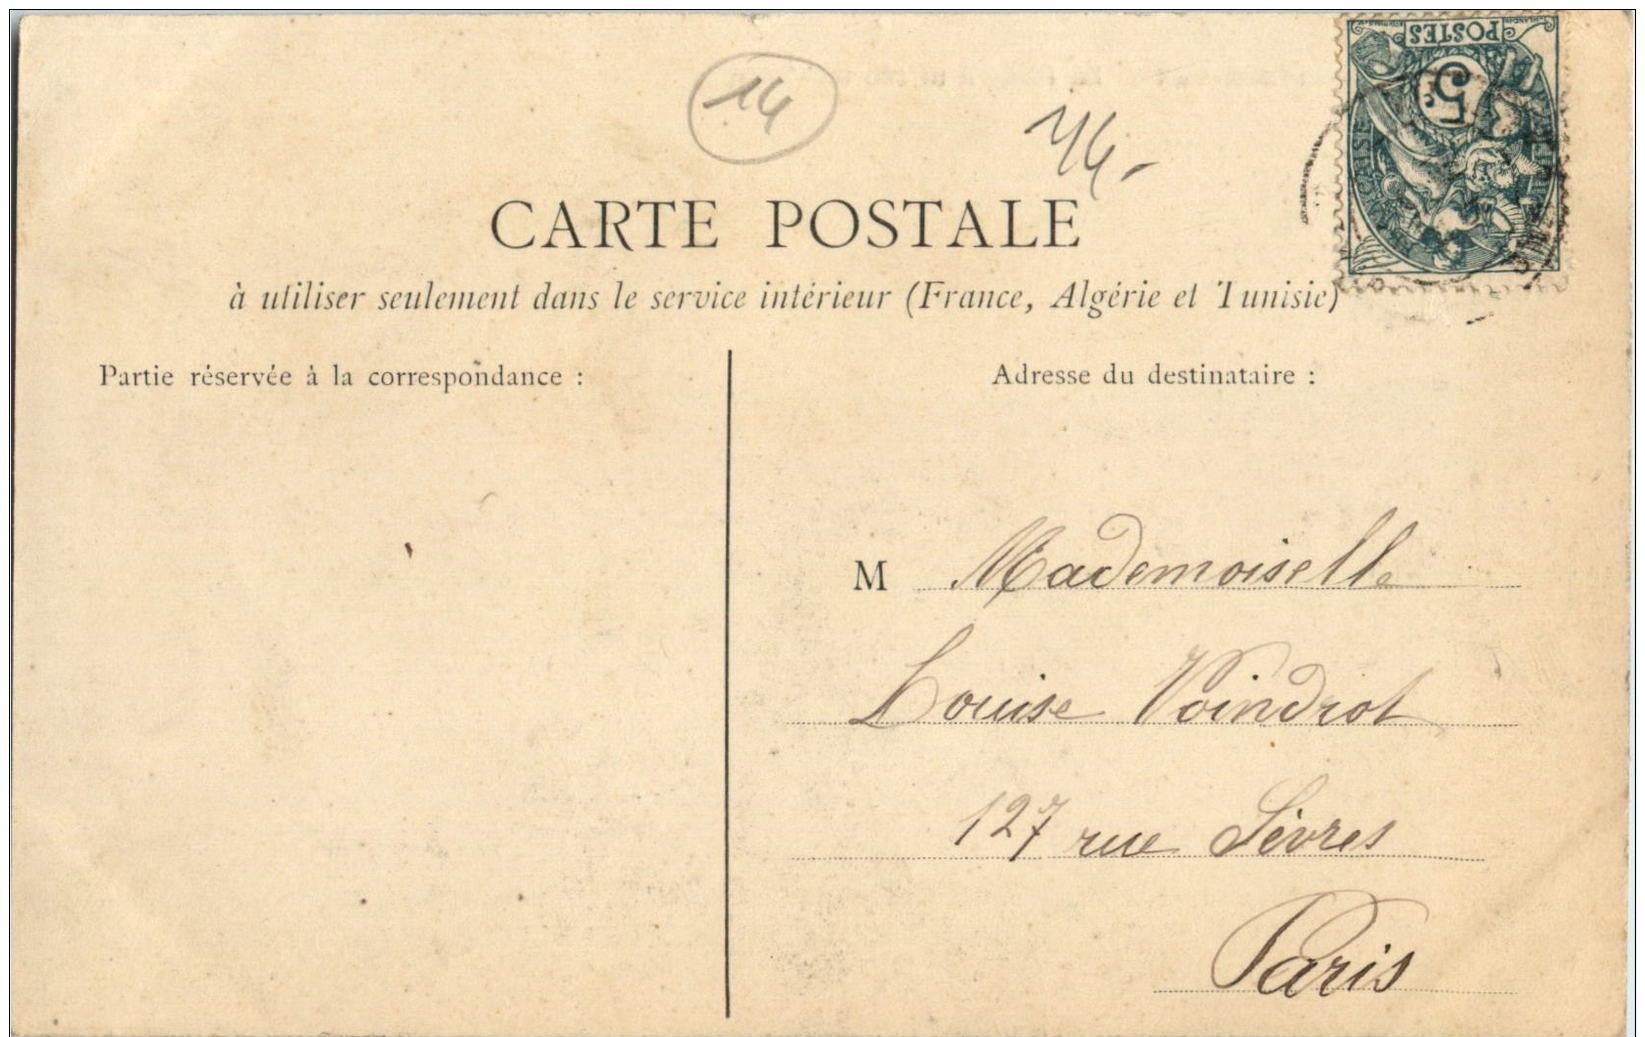 14
POSTES
5c
CARTE POSTALE
à utiliser seulement dans le service intérieur (France, Algérie et Tunisie)
Partie réservée à la correspondance :
Adresse du destinataire :
M Mademoiselle
Louise Voindrot
127 rue Sèvres
Paris